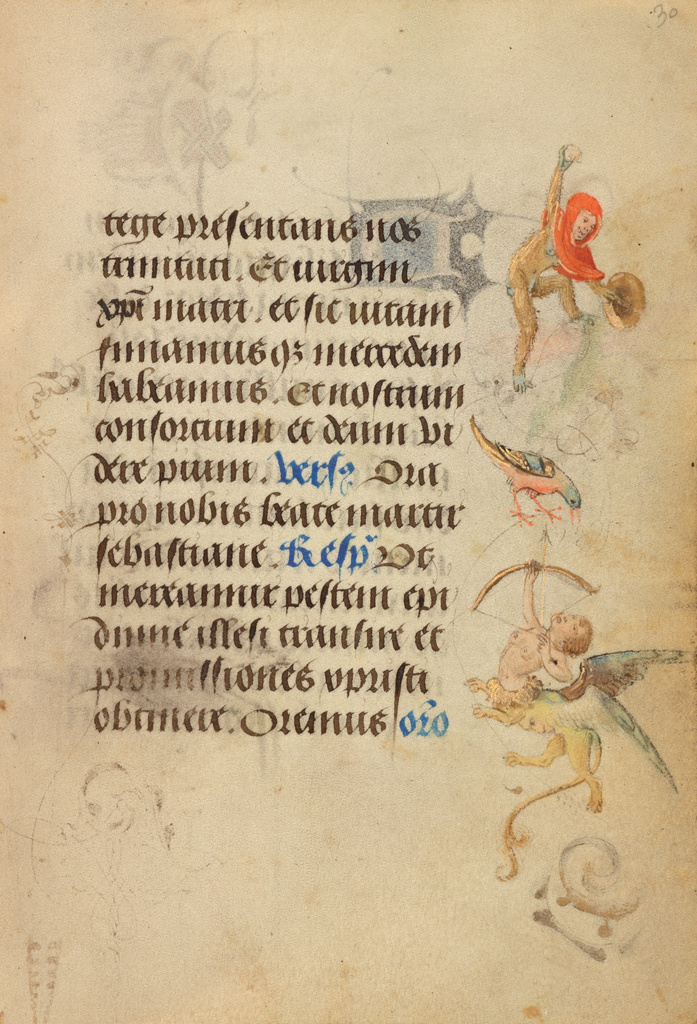 30
tege presentans nos
trinitati. Et uirgini
xpi matri. et sic uitam
finiamus qȝ mercedem
habeamus. Et nostrum
consortium et deum vi
dere pium. Versȝ Ora
pro nobis beate martir
sebastiane. Resp̄ Ut
mereamur pestem epi
dimie illesi transire et
promissiones xpristi
obtinere. Oremus or̄o